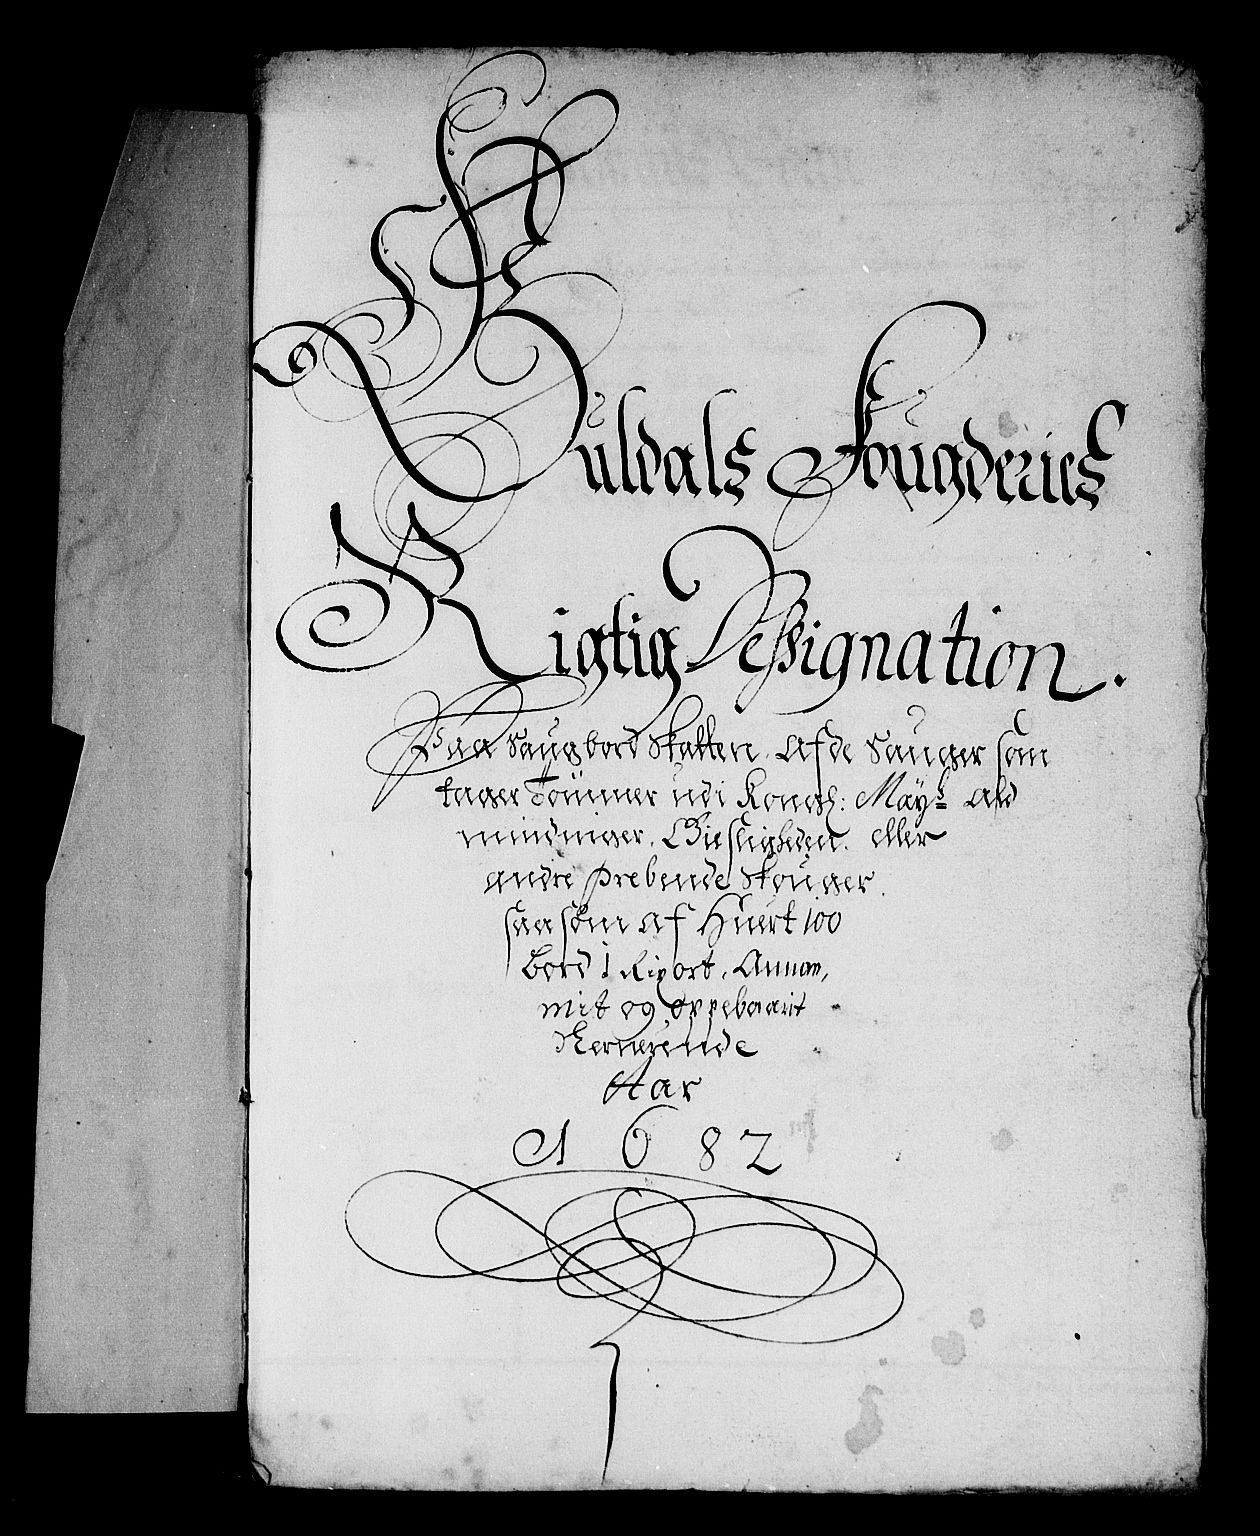 Guldals Fougderies
Rigtig Dessignation.
Paa Saugbord Skatten af de Sauger som
tager Tömmer udi Kongl: Mayts ald
mindninger. Giesligheden. eller
andre prebende Skouger.
saasom af Huert 100
Bord 1 Rix ort, Annam,
mit og Oppebaarit
Aar
1682